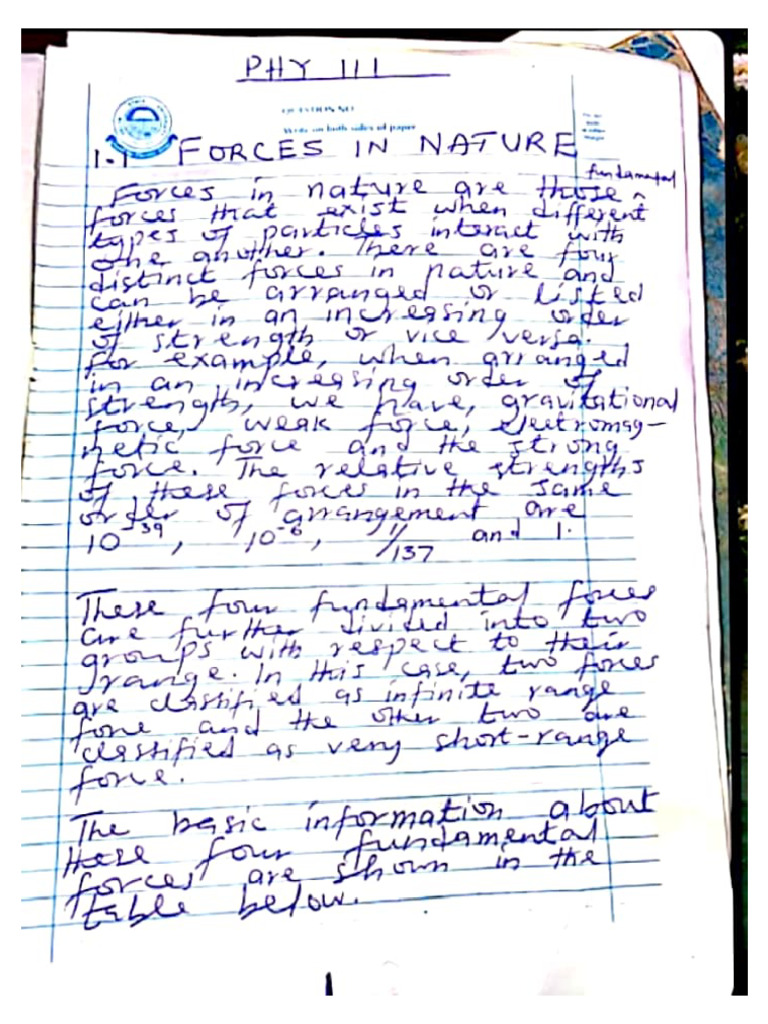 PHY 111
QUESTION NO
Write on both sides of paper
1.1 FORCES IN NATURE
fundamental
Forces in nature are those ^
forces that exist when different
types of particles interact with
one another. There are four
distinct forces in nature and
can be arranged or listed
either in an increasing order
of strength or vice versa.
For example, when arranged
in an increasing order of
strength, we have, gravitational
force, weak force, electromag-
netic force and the strong
force. The relative strengths
of these forces in the same
order of arrangement are
10^-39, 10^-6, 1/137 and 1.
These four fundamental forces
are further divided into two
groups with respect to their
range. In this case, two forces
are classified as infinite range
force and the other two are
classified as very short-range
force.
The basic information about
these four fundamental
forces are shown in the
table below.